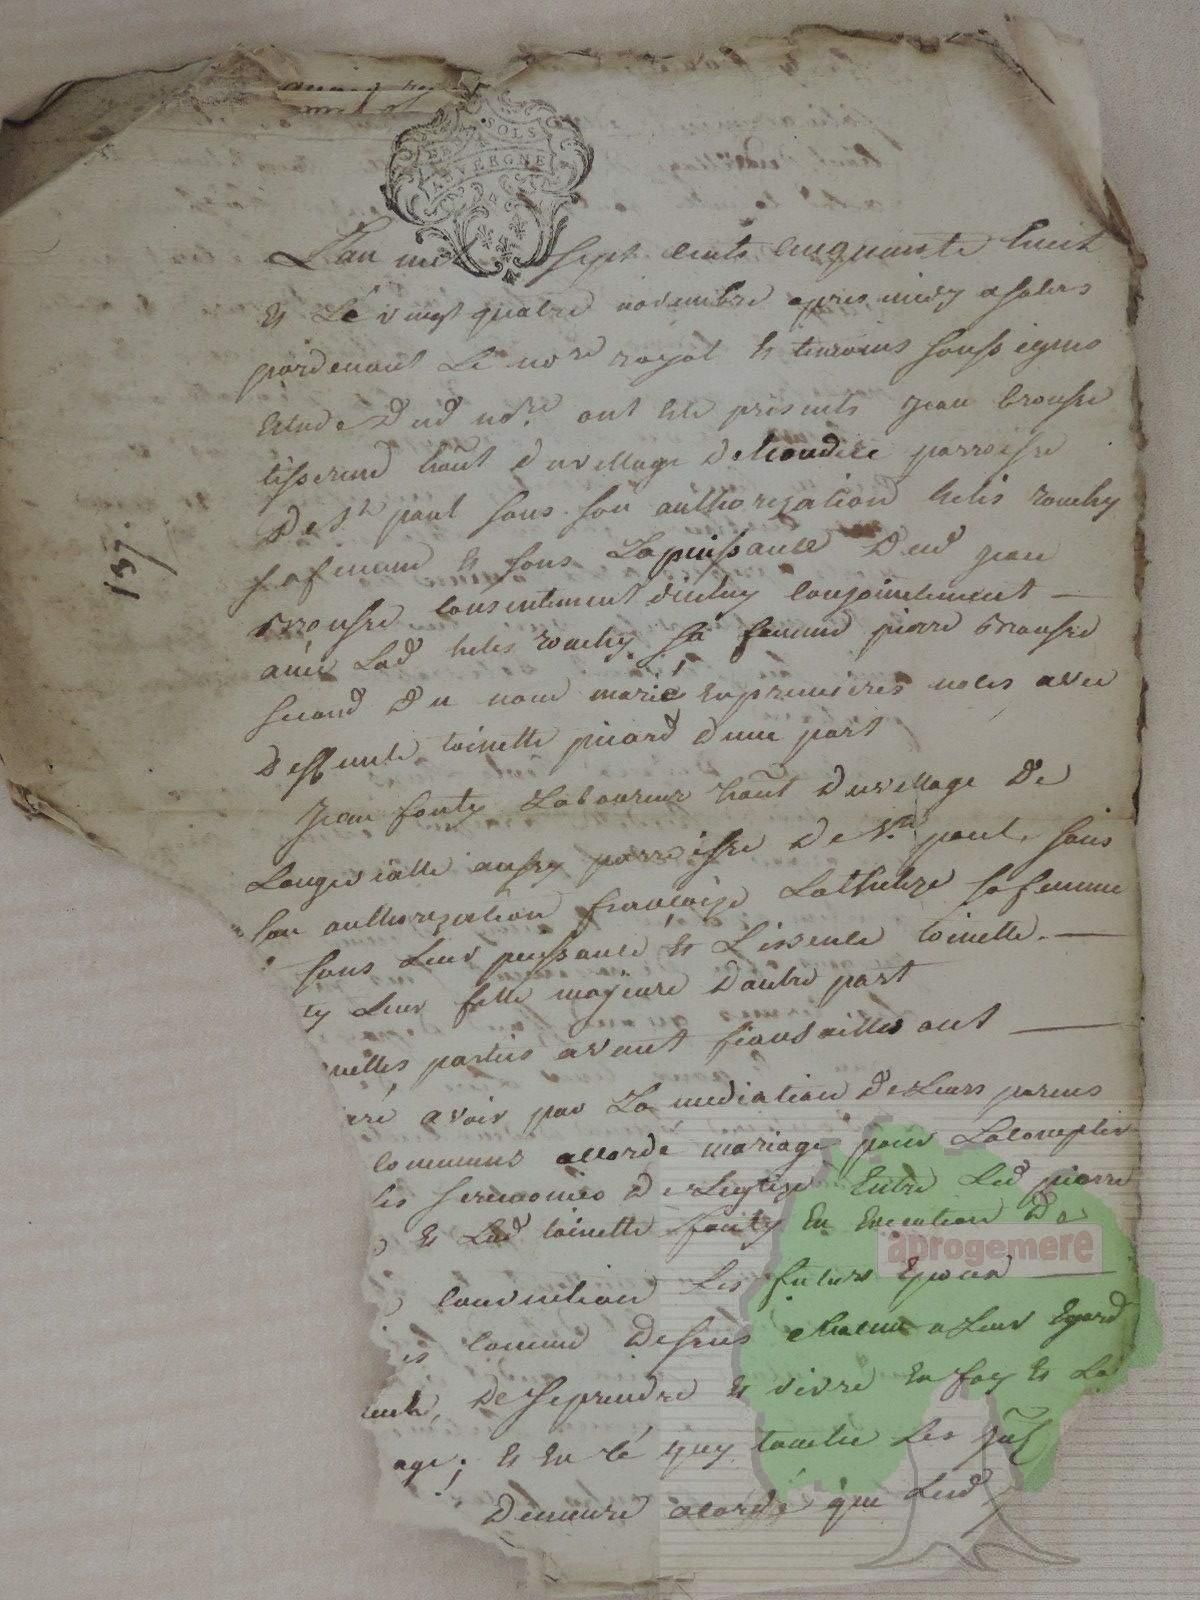 SOLS
AUVERGNE
L'an mil sept cents cinquante huit
et le vingt quatre novembre apres midy a salers
pardevant le nore royal et temoins soussignes
Etude dud nore. ont ete presents jean brousse
tisserend hant du village de paroisse
de St paul sous son authorization helis rouchy
sa femme et sous la puissance dud jean
brousse consentement d'icluy conjointement —
avec lad helis rouchy sa femme pierre brousse
second du nom marié en premieres noces avec
deffunte toinette picard d'une part
jean fonty laboureur hant du village de
Longevialle aussy parroisse de St. paul, sous
son authorization françoize Lathelize sa femme
sous leur puissance et Licence toinette. —
ty leur fille majeure d'autre part
uelles parties avant fiansailles ont —
eré avoir par la mediation de leurs parens
communs accordé mariage pour l'acomplir
les seremonies de l'eglize Entre led pierre
e et lad toinette fonty En Execution de
convention les futurs Epoux —
is comme dessus chacun a leur Egard
de se prendre et vivre en foy et Lo
age; et en cé quy touche les
demeure acordé que led
137.
aprogemere